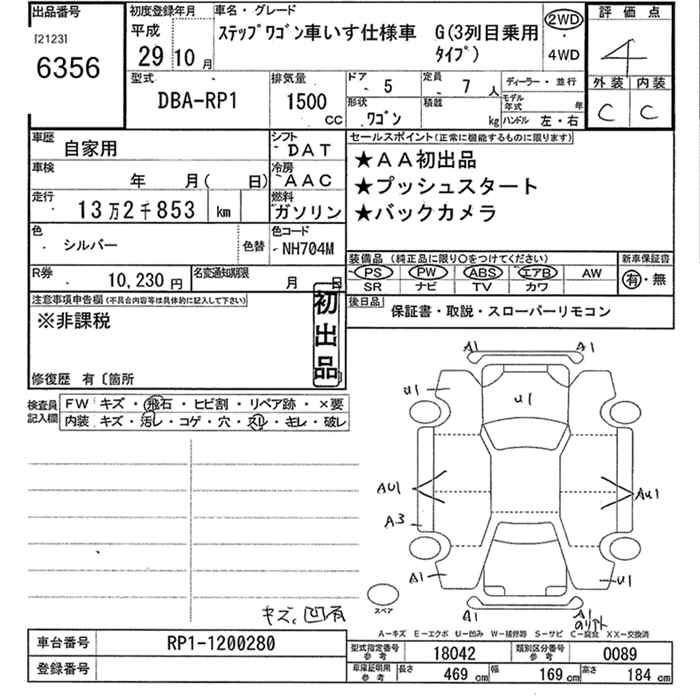 出品番号
[2123]
6356
初度登録年月
平成
29年10月
車名・グレード
ステップワゴン車いす仕様車 G(3列目乗用
タイプ)
2WD
・
4WD
評価点
4
外装 内装
C C
型式
DBA-RP1
排気量
1500
CC
ドア
5
定員
7人
形状
ワゴン
積載
kg
ディーラー・並行
モデル年式 年
ハンドル 左・右
車歴
自家用
シフト
DAT
車検
年 月( 日)
冷房
AAC
走行
13万2千853 km
燃料
ガソリン
色
シルバー
色替
色コード
NH704M
R券
10,230円
名変通知期限
月 日
セールスポイント(正常に機能するものに限ります)
★AA初出品
★プッシュスタート
★バックカメラ
装備品(純正品に限り○をつけてください)
PS PW ABS エアB AW
SR ナビ TV カワ
新車保証書
有・無
後日品
保証書・取説・スローパーリモコン
注意事項申告欄(不具合内容等は具体的に記入して下さい)
※非課税
初出品
修復歴 有〔箇所
検査員
記入欄
FW キズ・飛石・ヒビ割・リペア跡・×要
内装 キズ・汚レ・コゲ・穴・スレ・キレ・破レ
A1 A1
U1
U1
AU1
AU1
A3
A1
U1
A1
A1
のりアト
スペア
キズ、凹有
A-キズ E-エクボ U-凹み W-補修跡 S-サビ C-腐食 XX-交換済
車台番号
RP1-1200280
登録番号
型式指定番号
参考
18042
類別区分番号
参考
0089
車庫証明用
参考
長さ
469 cm
幅
169 cm
高さ
184 cm